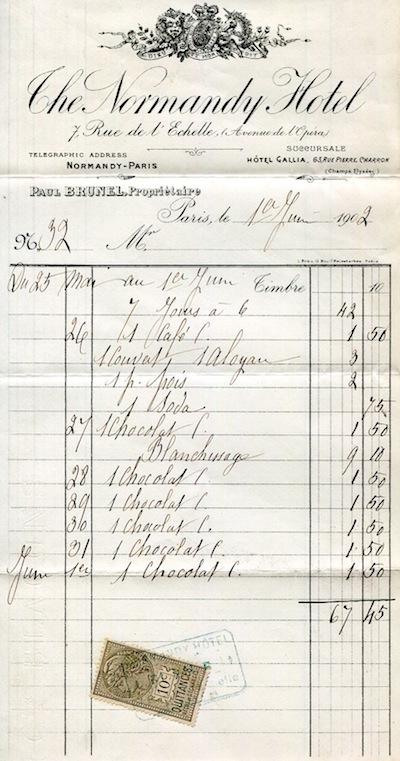 DIEU ET MON DROIT
The Normandy Hotel
7, Rue de l'Echelle, (Avenue de l'Opéra)
TELEGRAPHIC ADDRESS
NORMANDY-PARIS
SUCCURSALE
HÔTEL GALLIA, 65, RUE PIERRE CHARRON
(Champs Elysées)
PAUL BRUNEL, Propriétaire
Paris, le 1er Juin 1902
No. 32 Mr
Du 25 Mai au 1er Juin Timbre 10
7 Jours à 6 42
26 1 Café C. 1 50
1 Couvert 1 Aloyau 3
1 p. pois 2
1 Soda 75
27 1 Chocolat C. 1 50
Blanchissage 9 10
28 1 Chocolat C. 1 50
29 1 Chocolat C. 1 50
30 1 Chocolat C. 1 50
31 1 Chocolat C. 1 50
Juin 1er 1 Chocolat C. 1 50
67 45
NORMANDY HÔTEL
10c
QUITTANCES